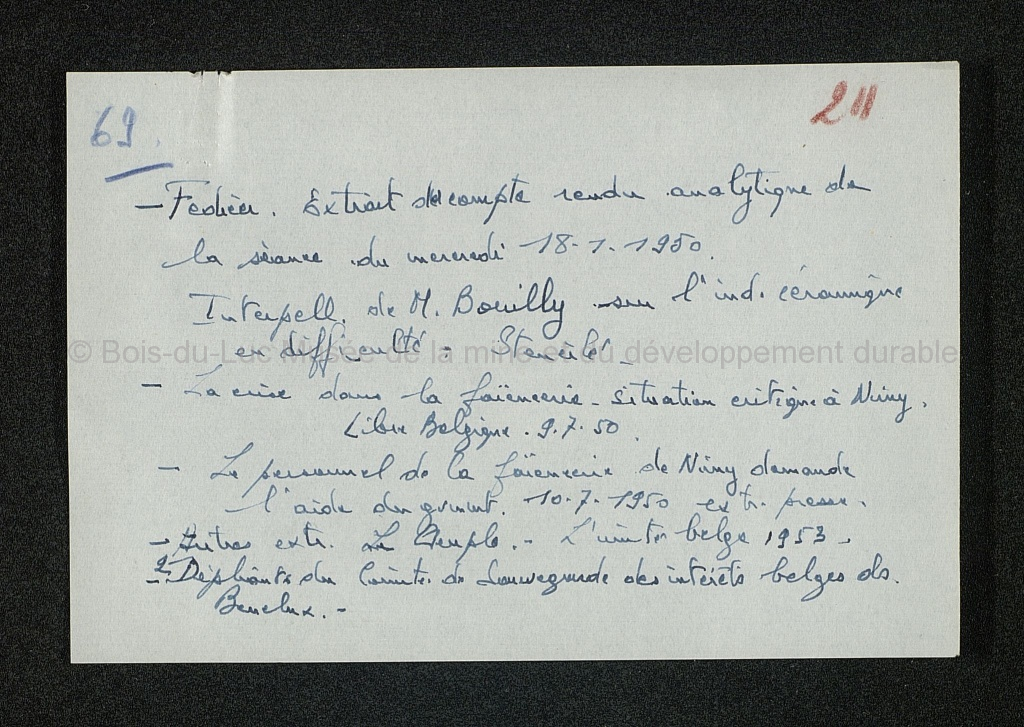 69.
211
— Fedicer. Extrait du compte rendu analytique de
la séance du mercredi 18-1-1950.
Interpell. de M. Bouilly sur l'ind. céramique
en difficulté = Stencilé —
© Bois-du-Luc Musée de la mine et du développement durable
— La crise dans la faïencerie – situation critique à Nimy.
Libre Belgique. 9.7.50.
— Le personnel de la faïencerie de Nimy demande
l'aide du gvmnt. 10-7-1950 extr. presse.
— Autres extr. Le Peuple. – L'unité belge 1953 –
— 2 Dépliants du Comité de Sauvegarde des intérêts belges ds.
Benelux. –